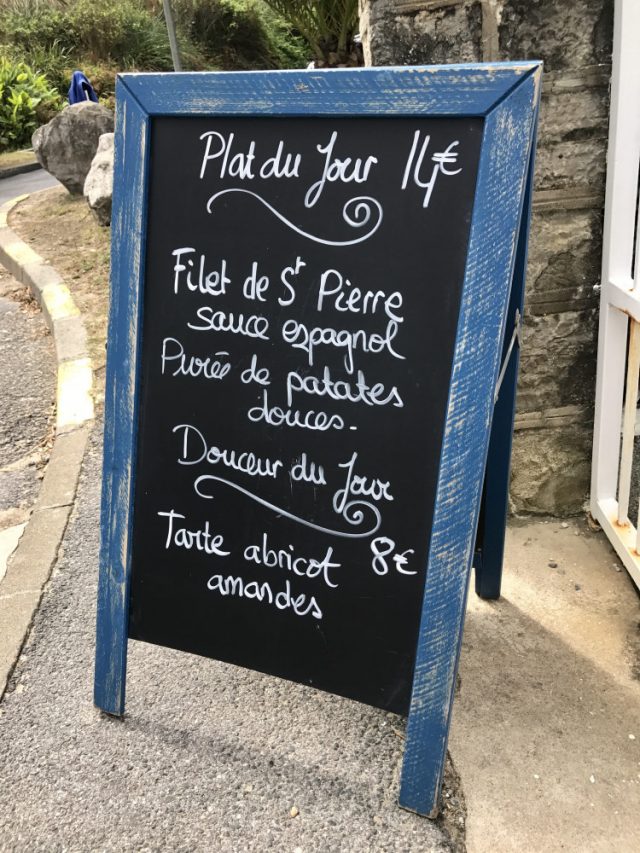 Plat du Jour 14€
Filet de St Pierre
sauce espagnol
Purée de patates
douces.
Douceur du Jour
Tarte abricot 8€
amandes